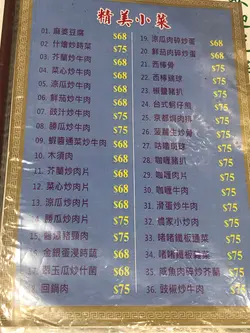 精美小菜
01. 麻婆豆腐 $68
02. 什燴炒時菜 $75
03. 芥蘭炒牛肉 $75
04. 菜心炒牛肉 $75
05. 涼瓜炒牛肉 $75
06. 鮮茄炒牛肉 $75
07. 豉汁炒牛肉
08. 勝瓜炒牛肉
09. 蝦醬通菜炒牛肉
10. 木須肉 $68
11. 芥蘭炒肉片 $68
12. 菜心炒肉片 $68
13. 涼瓜炒肉片 $68
14. 勝瓜炒肉片 $68
15. 豬頸肉 $75
16. 金銀蛋浸時蔬 $68
17. 玉瓜炒什菌 $68
回鍋肉 $75
19. 涼瓜肉碎炒蛋 $68
20. 鮮茄肉碎炒蛋 $68
21. 西檸骨 $75
22. 西檸雞球 $75
23. 椒鹽豬扒 $75
24. 台式蚵仔 $75
25. 京都焗肉排 $75
26. 菠蘿生炒骨 $75
27. 咕嚕斑球 $75
28. 咖喱豬扒 $75
29. 咖喱肉片 $75
30. 咖喱牛肉 $75
31. 滑蛋炒牛肉 $75
32. 農家小炒肉 $75
33. 啫啫鐵板通菜 $75
34. 啫啫鐵板 $75
35. 咸魚肉碎炒芥蘭 $75
36. 豉椒炒牛肉 $75